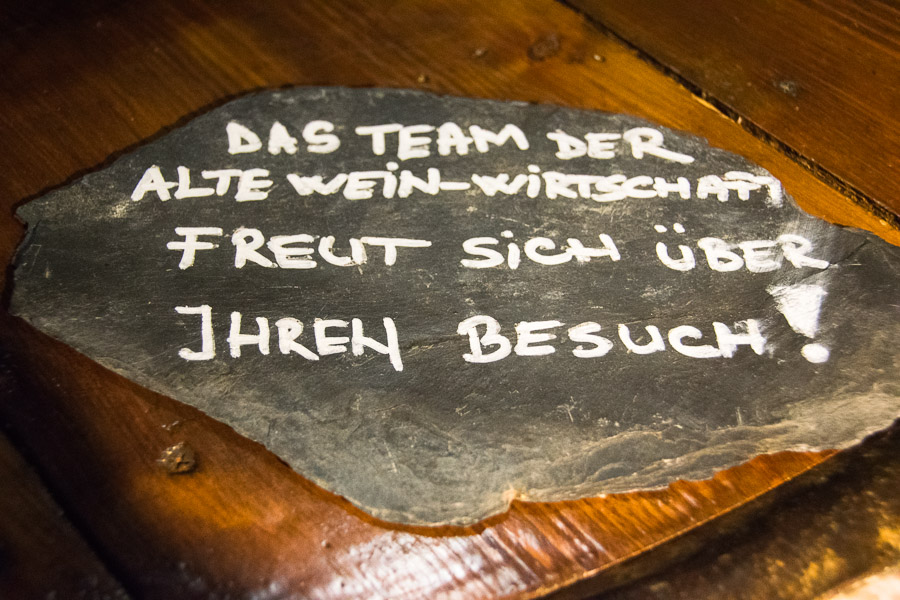 DAS TEAM DER
ALTE WEIN-WIRTSCHAFT
FREUT SICH ÜBER
IHREN BESUCH!